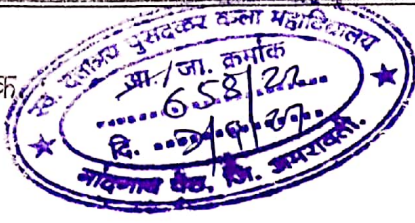 क
स्व. दत्तात्रय पुसदकर कला महाविद्यालय
आ./जा. क्रमांक
658/22
दि.
नांदगाव पेठ, जि. अमरावती.